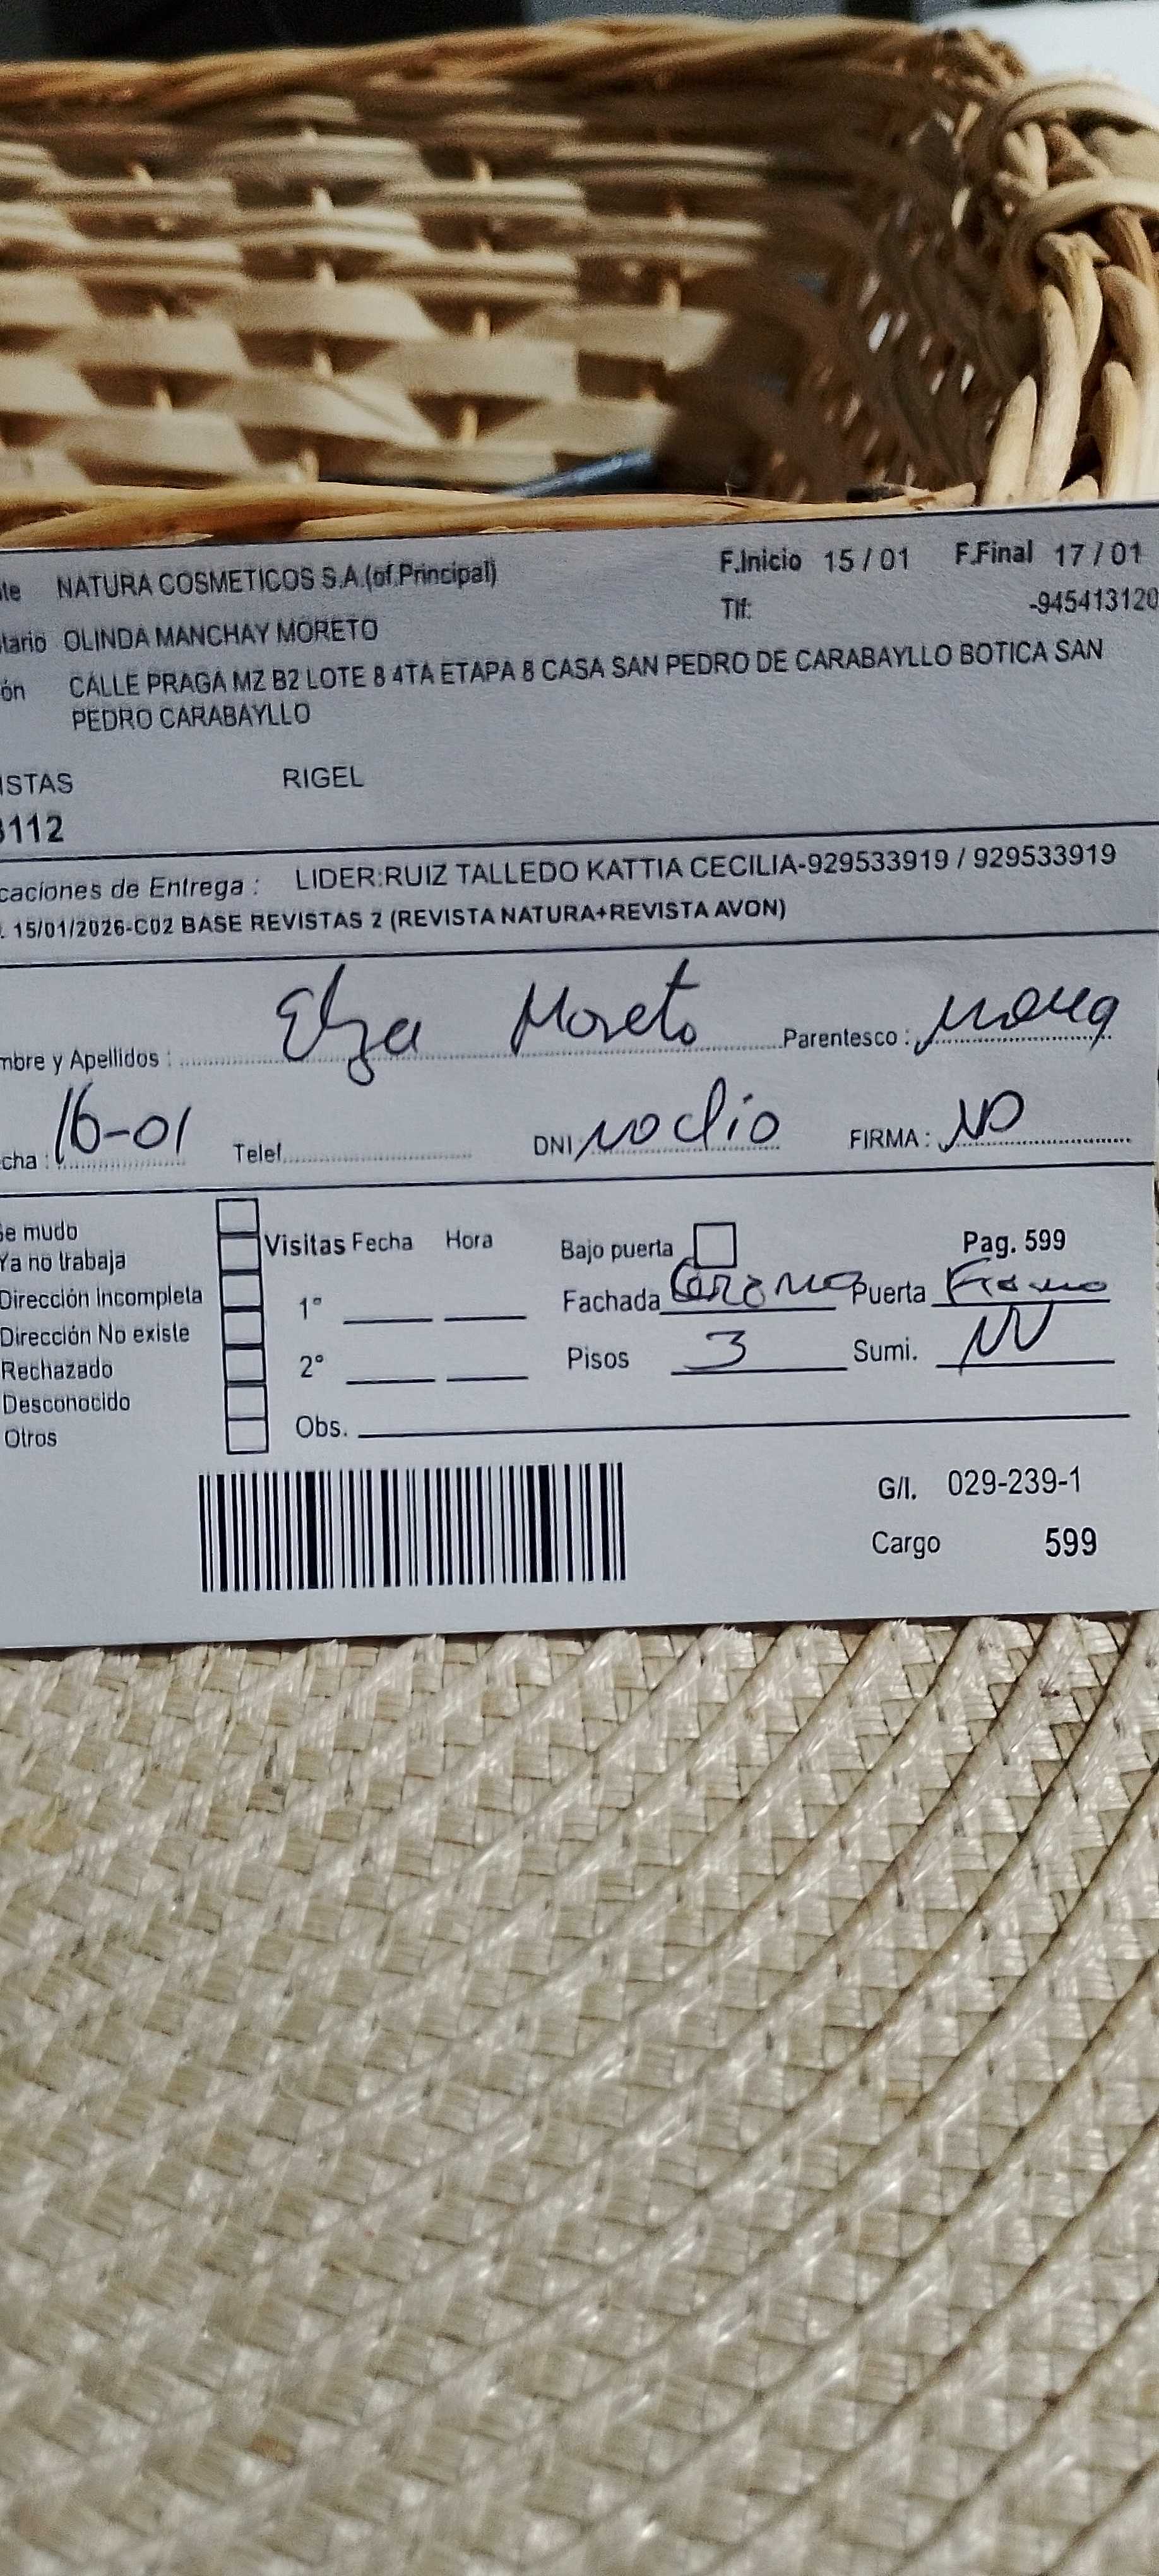 te NATURA COSMETICOS S.A.(of.Principal) F.Inicio 15 / 01 F.Final 17 / 01
Tlf: -945413120
tario OLINDA MANCHAY MORETO
ón CALLE PRAGA MZ B2 LOTE 8 4TA ETAPA 8 CASA SAN PEDRO DE CARABAYLLO BOTICA SAN
PEDRO CARABAYLLO
ISTAS RIGEL
3112
caciones de Entrega : LIDER:RUIZ TALLEDO KATTIA CECILIA-929533919 / 929533919
. 15/01/2026-C02 BASE REVISTAS 2 (REVISTA NATURA+REVISTA AVON)
mbre y Apellidos : Elza Moreto Parentesco :
cha : 16-01 Telef. DNI no dio FIRMA : NO
Se mudo
Ya no trabaja
Dirección Incompleta
Dirección No existe
Rechazado
Desconocido
Otros
Visitas Fecha Hora Bajo puerta Pag. 599
1° Fachada Puerta
2° Pisos 3 Sumi.
Obs.
G/l. 029-239-1
Cargo 599